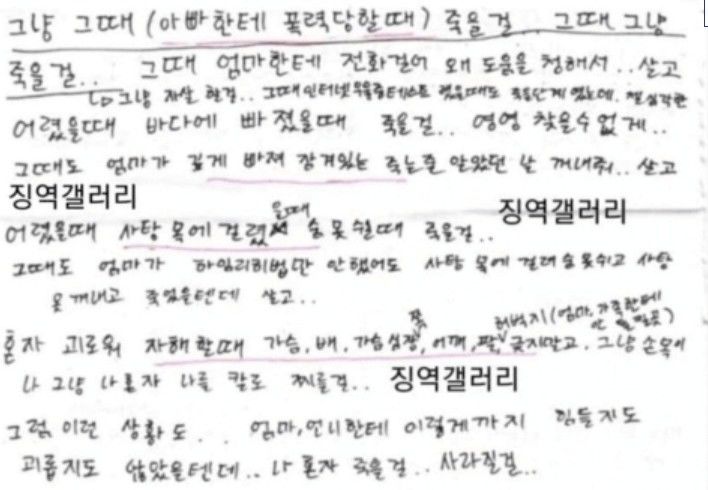 그냥 그때 (아빠한테 폭력당할때) 죽을걸.. 그때 그냥
죽을걸.. 그때 엄마한테 전화걸어 왜 도움을 청해서.. 살고
↳ 그냥 자살 할걸.. 그때 인터넷 우울증테스트 했을때도
어렸을때 바다에 빠졌을때 죽을걸.. 영영 찾을수 없게..
그때도 엄마가 깊게 빠져 잠겨있는 죽는줄 알았던 날 꺼내줘.. 살고
징역갤러리
징역갤러리
어렸을때 사탕 목에 걸렸을때 숨 못 쉴때 죽을걸..
그때도 엄마가 하임리히법만 안했어도 사탕 목에 걸려 숨 못쉬고 사탕
못 꺼내고 죽었을텐데 살고..
허벅지 (엄마, 가족한테
혼자 괴로워 자해할때 가슴, 배, 가슴 심장쪽, 어깨, 팔, 긋지말고, 그냥 손목이
나 그냥 나 혼자 나를 칼로 찌를걸..
징역갤러리
그럼 이런 상황도.. 엄마, 언니한테 이렇게까지 힘들지도
괴롭지도 않았을텐데.. 나 혼자 죽을걸.. 사라질걸..